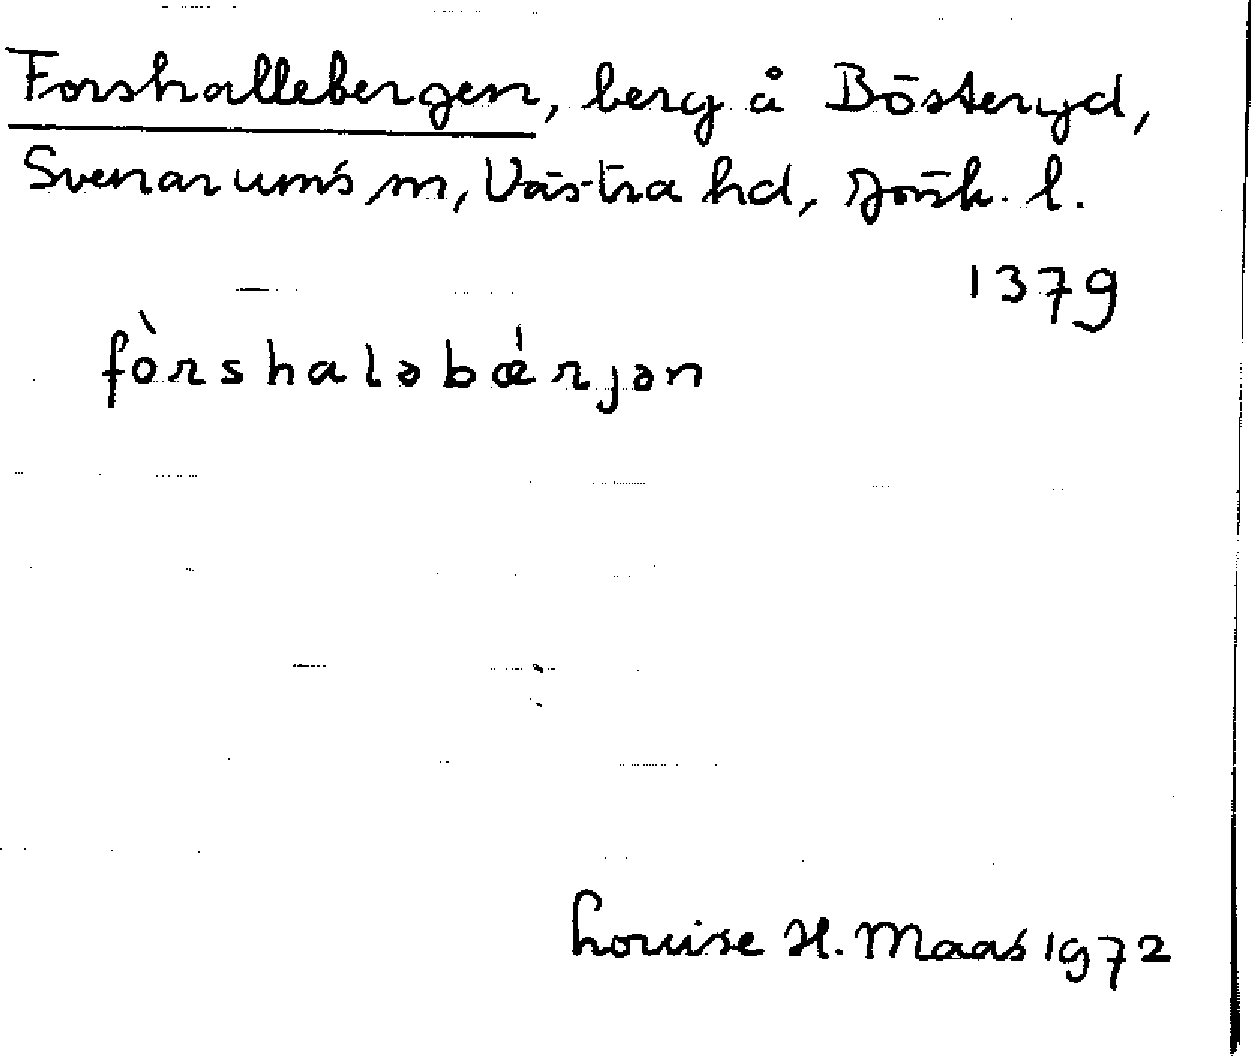 Forshallebergen, berg å Bösteryd,
Svenarums sn, Västra hd, Jönk. l.
1379
fòrshaləbǽrjən
Louise H. Maas 1972